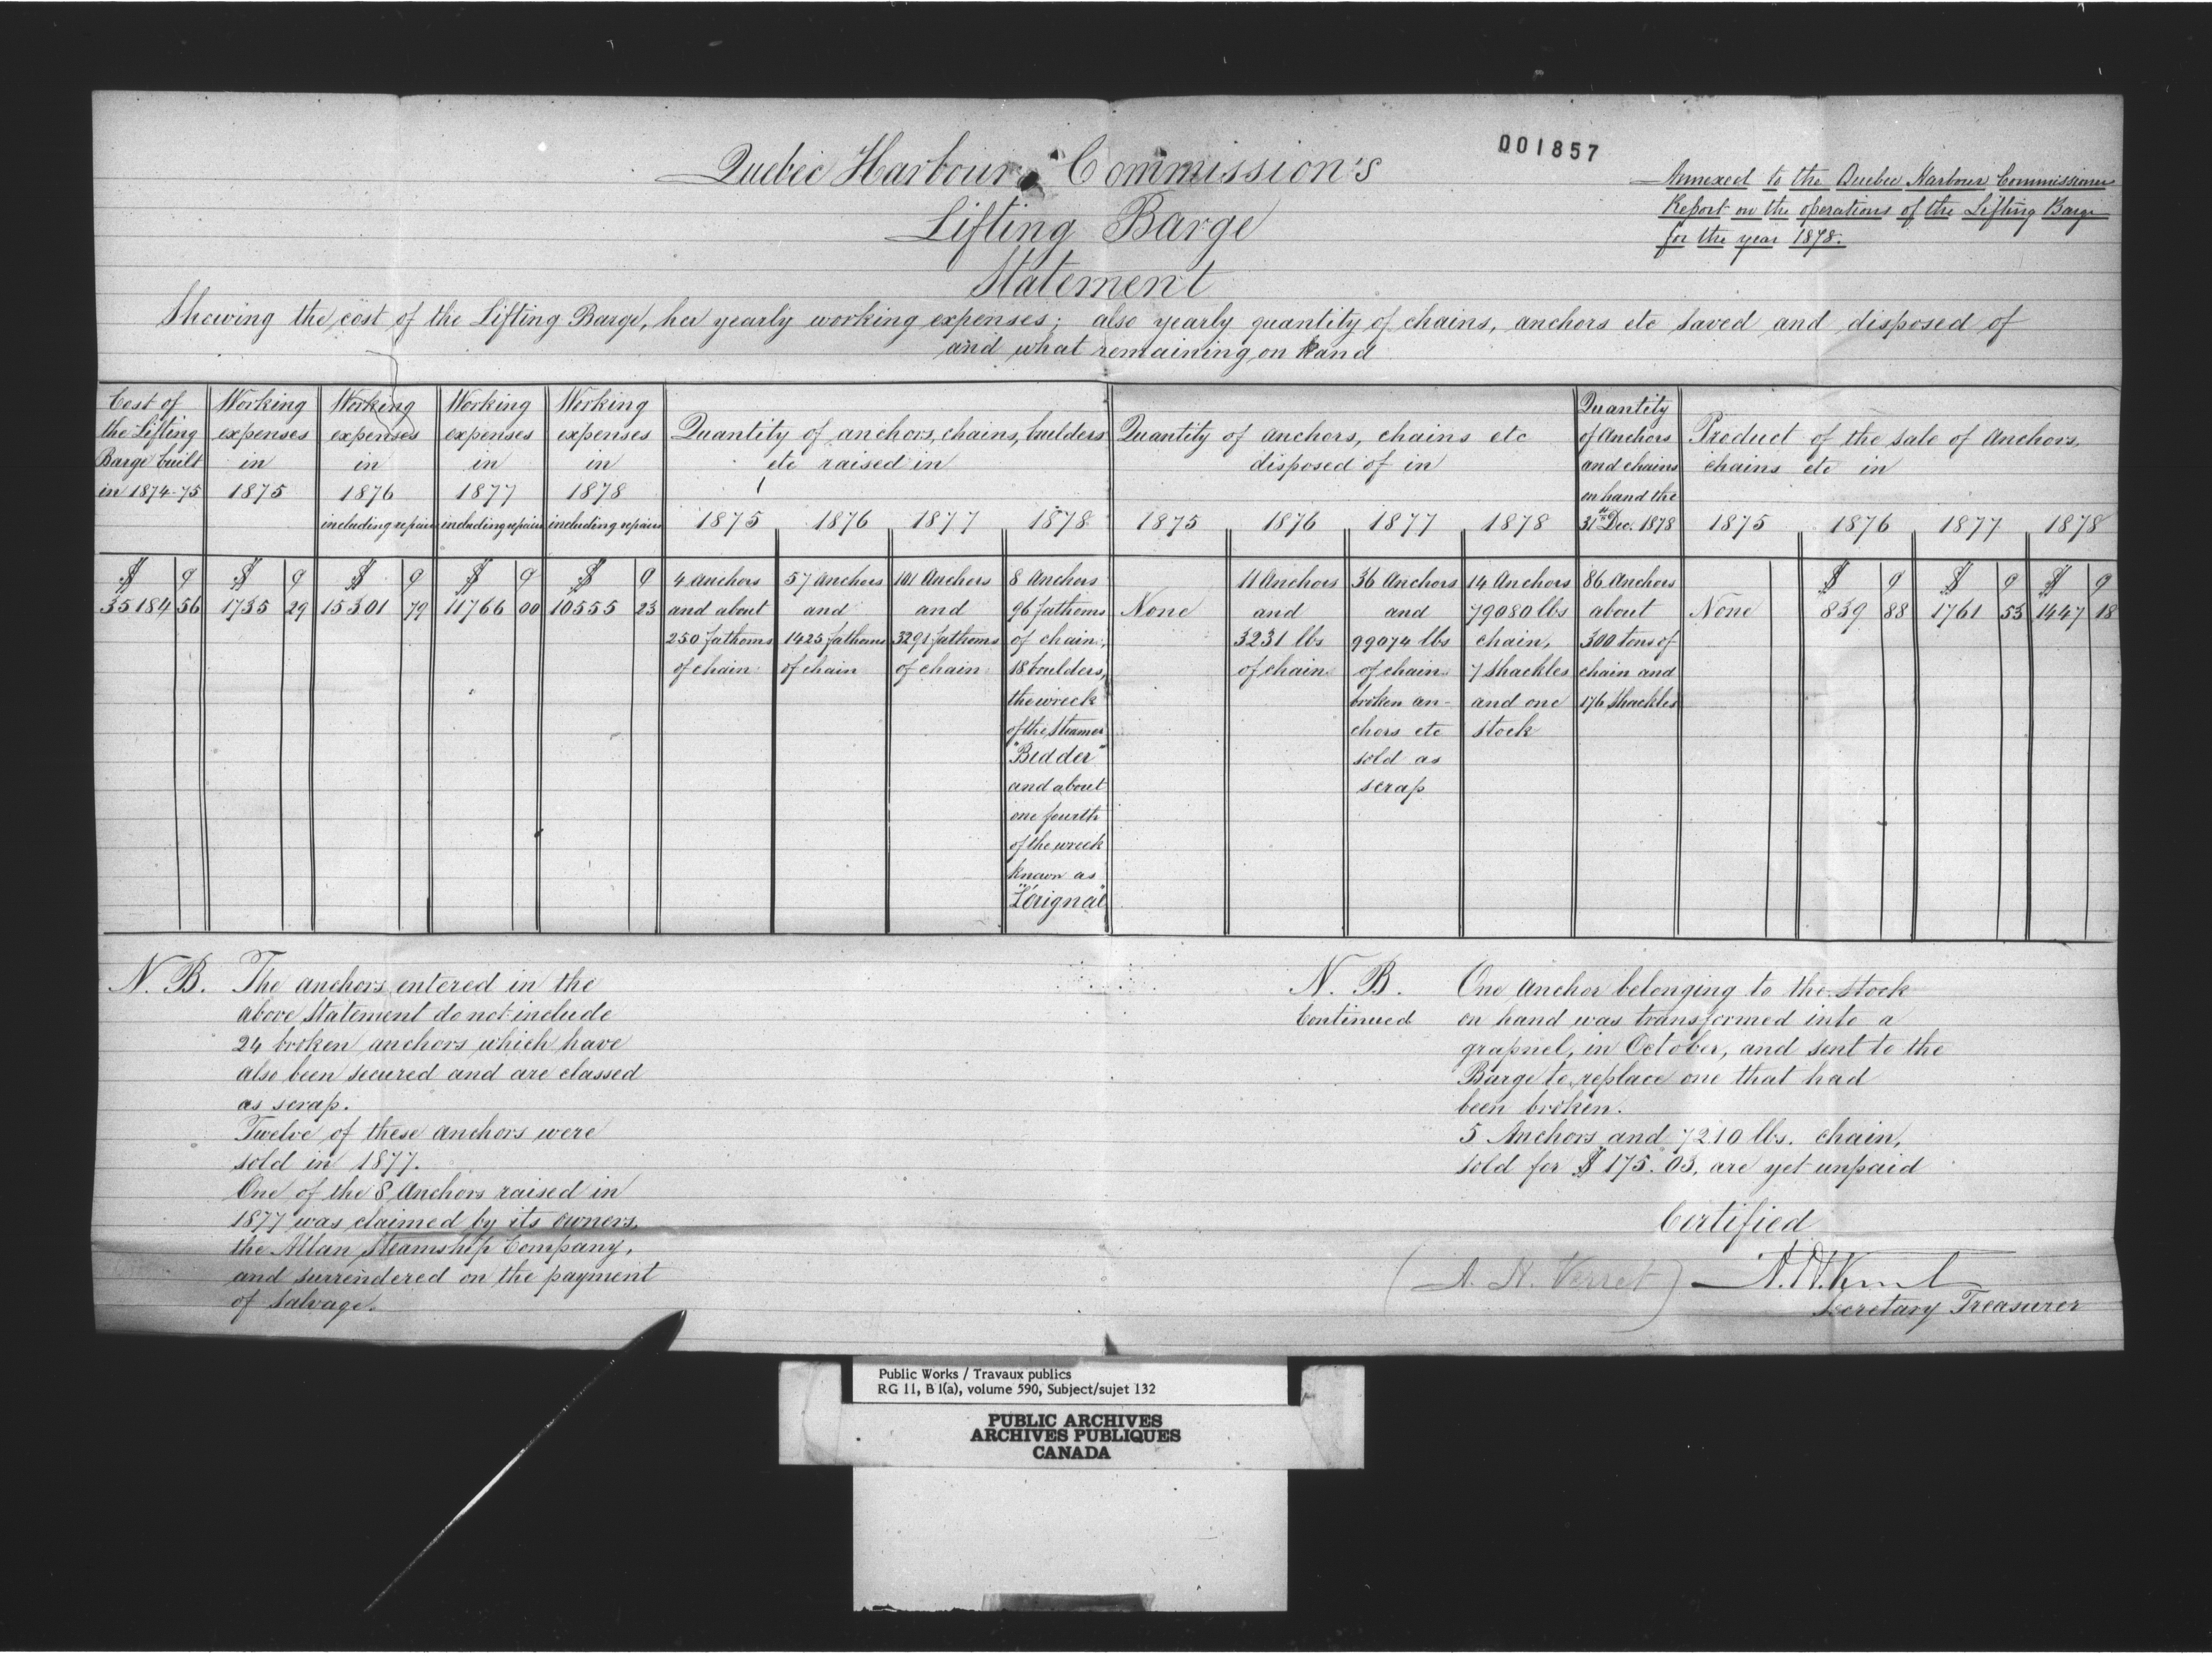 001857
Quebec Harbour Commission's
Lifting Barge
Statement
Annexed to the Quebec Harbour Commissioners
Report on the operations of the Lifting Barge
for the year 1878.
Showing the cost of the Lifting Barge, her yearly working expenses; also yearly quantity of chains, anchors etc saved and disposed of
and what remaining on hand
Cost of
the Lifting
Barge built
in 1874-75
$ ¢
35184 56
Working
expenses
in
1875
$ ¢
1735 29
Working
expenses
in
1876
including repairs
$ ¢
15301 79
Working
expenses
in
1877
including repairs
$ ¢
11766 00
Working
expenses
in
1878
including repairs
$ ¢
10555 23
Quantity of anchors, chains, boulders
etc raised in
1875
4 anchors
and about
250 fathoms
of chain
1876
57 anchors
and
1425 fathoms
of chain
1877
101 Anchors
and
3291 fathoms
of chain
1878
8 Anchors
96 fathoms
of chain,
18 boulders,
the wreck
of the Steamer
"Bedder"
and about
one fourth
of the wreck
known as
"L'orignal"
Quantity of anchors, chains etc
disposed of in
1875
None
1876
11 Anchors
and
3231 lbs
of chain
1877
36 Anchors
and
99074 lbs
of chain
broken an-
chors etc
sold as
scrap
1878
14 Anchors
79080 lbs
chain,
7 shackles
and one
stock
Quantity
of Anchors
and chains
on hand the
31st Dec. 1878
86 Anchors
about
300 tons of
chain and
176 Shackles
Product of the sale of Anchors,
chains etc in
1875
None
1876
$ ¢
839 88
1877
$ ¢
1761 53
1878
$ ¢
1447 18
N. B. The anchors entered in the
above Statement do not include
24 broken anchors which have
also been secured and are classed
as scrap.
Twelve of these anchors were
sold in 1877.
One of the 8 Anchors raised in
1877 was claimed by its owners,
the Allan Steamship Company,
and surrendered on the payment
of salvage.
N. B. One Anchor belonging to the Stock
Continued on hand was transformed into a
grapnel, in October, and sent to the
Barge to replace one that had
been broken.
5 Anchors and 7210 lbs. chain,
sold for $175.03, are yet unpaid
Certified
(A. H. Verret) A. H. Verret
Secretary Treasurer
Public Works / Travaux publics
RG 11, B 1(a), volume 590, Subject/sujet 132
PUBLIC ARCHIVES
ARCHIVES PUBLIQUES
CANADA